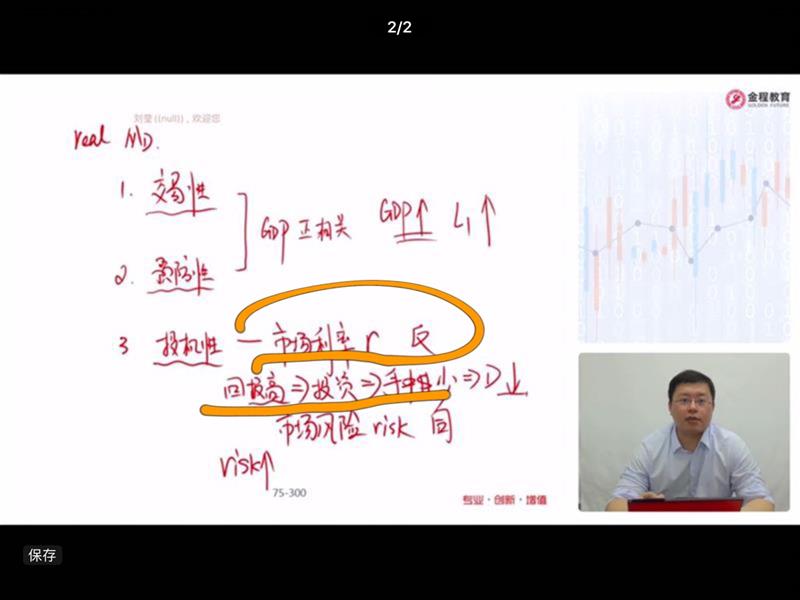 2/2
金程教育
GOLDEN FUTURE
刘莹((null))，欢迎您
real MD.
1. 交易性
GDP 正相关 GDP↑ L₁↑
2. 预防性
3 投机性 — 市场利率 r 反
回报高⇒投资⇒手中钱少⇒D↓
市场风险 risk 同
risk↑
75-300
专业·创新·增值
保存